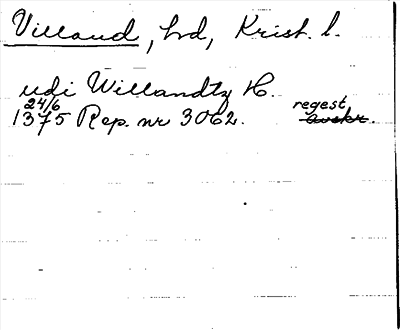 Villand, hd, Krist. l.
udi Willandtz H.
24/6 regest
1375 Rep. nr 3062. avskr.